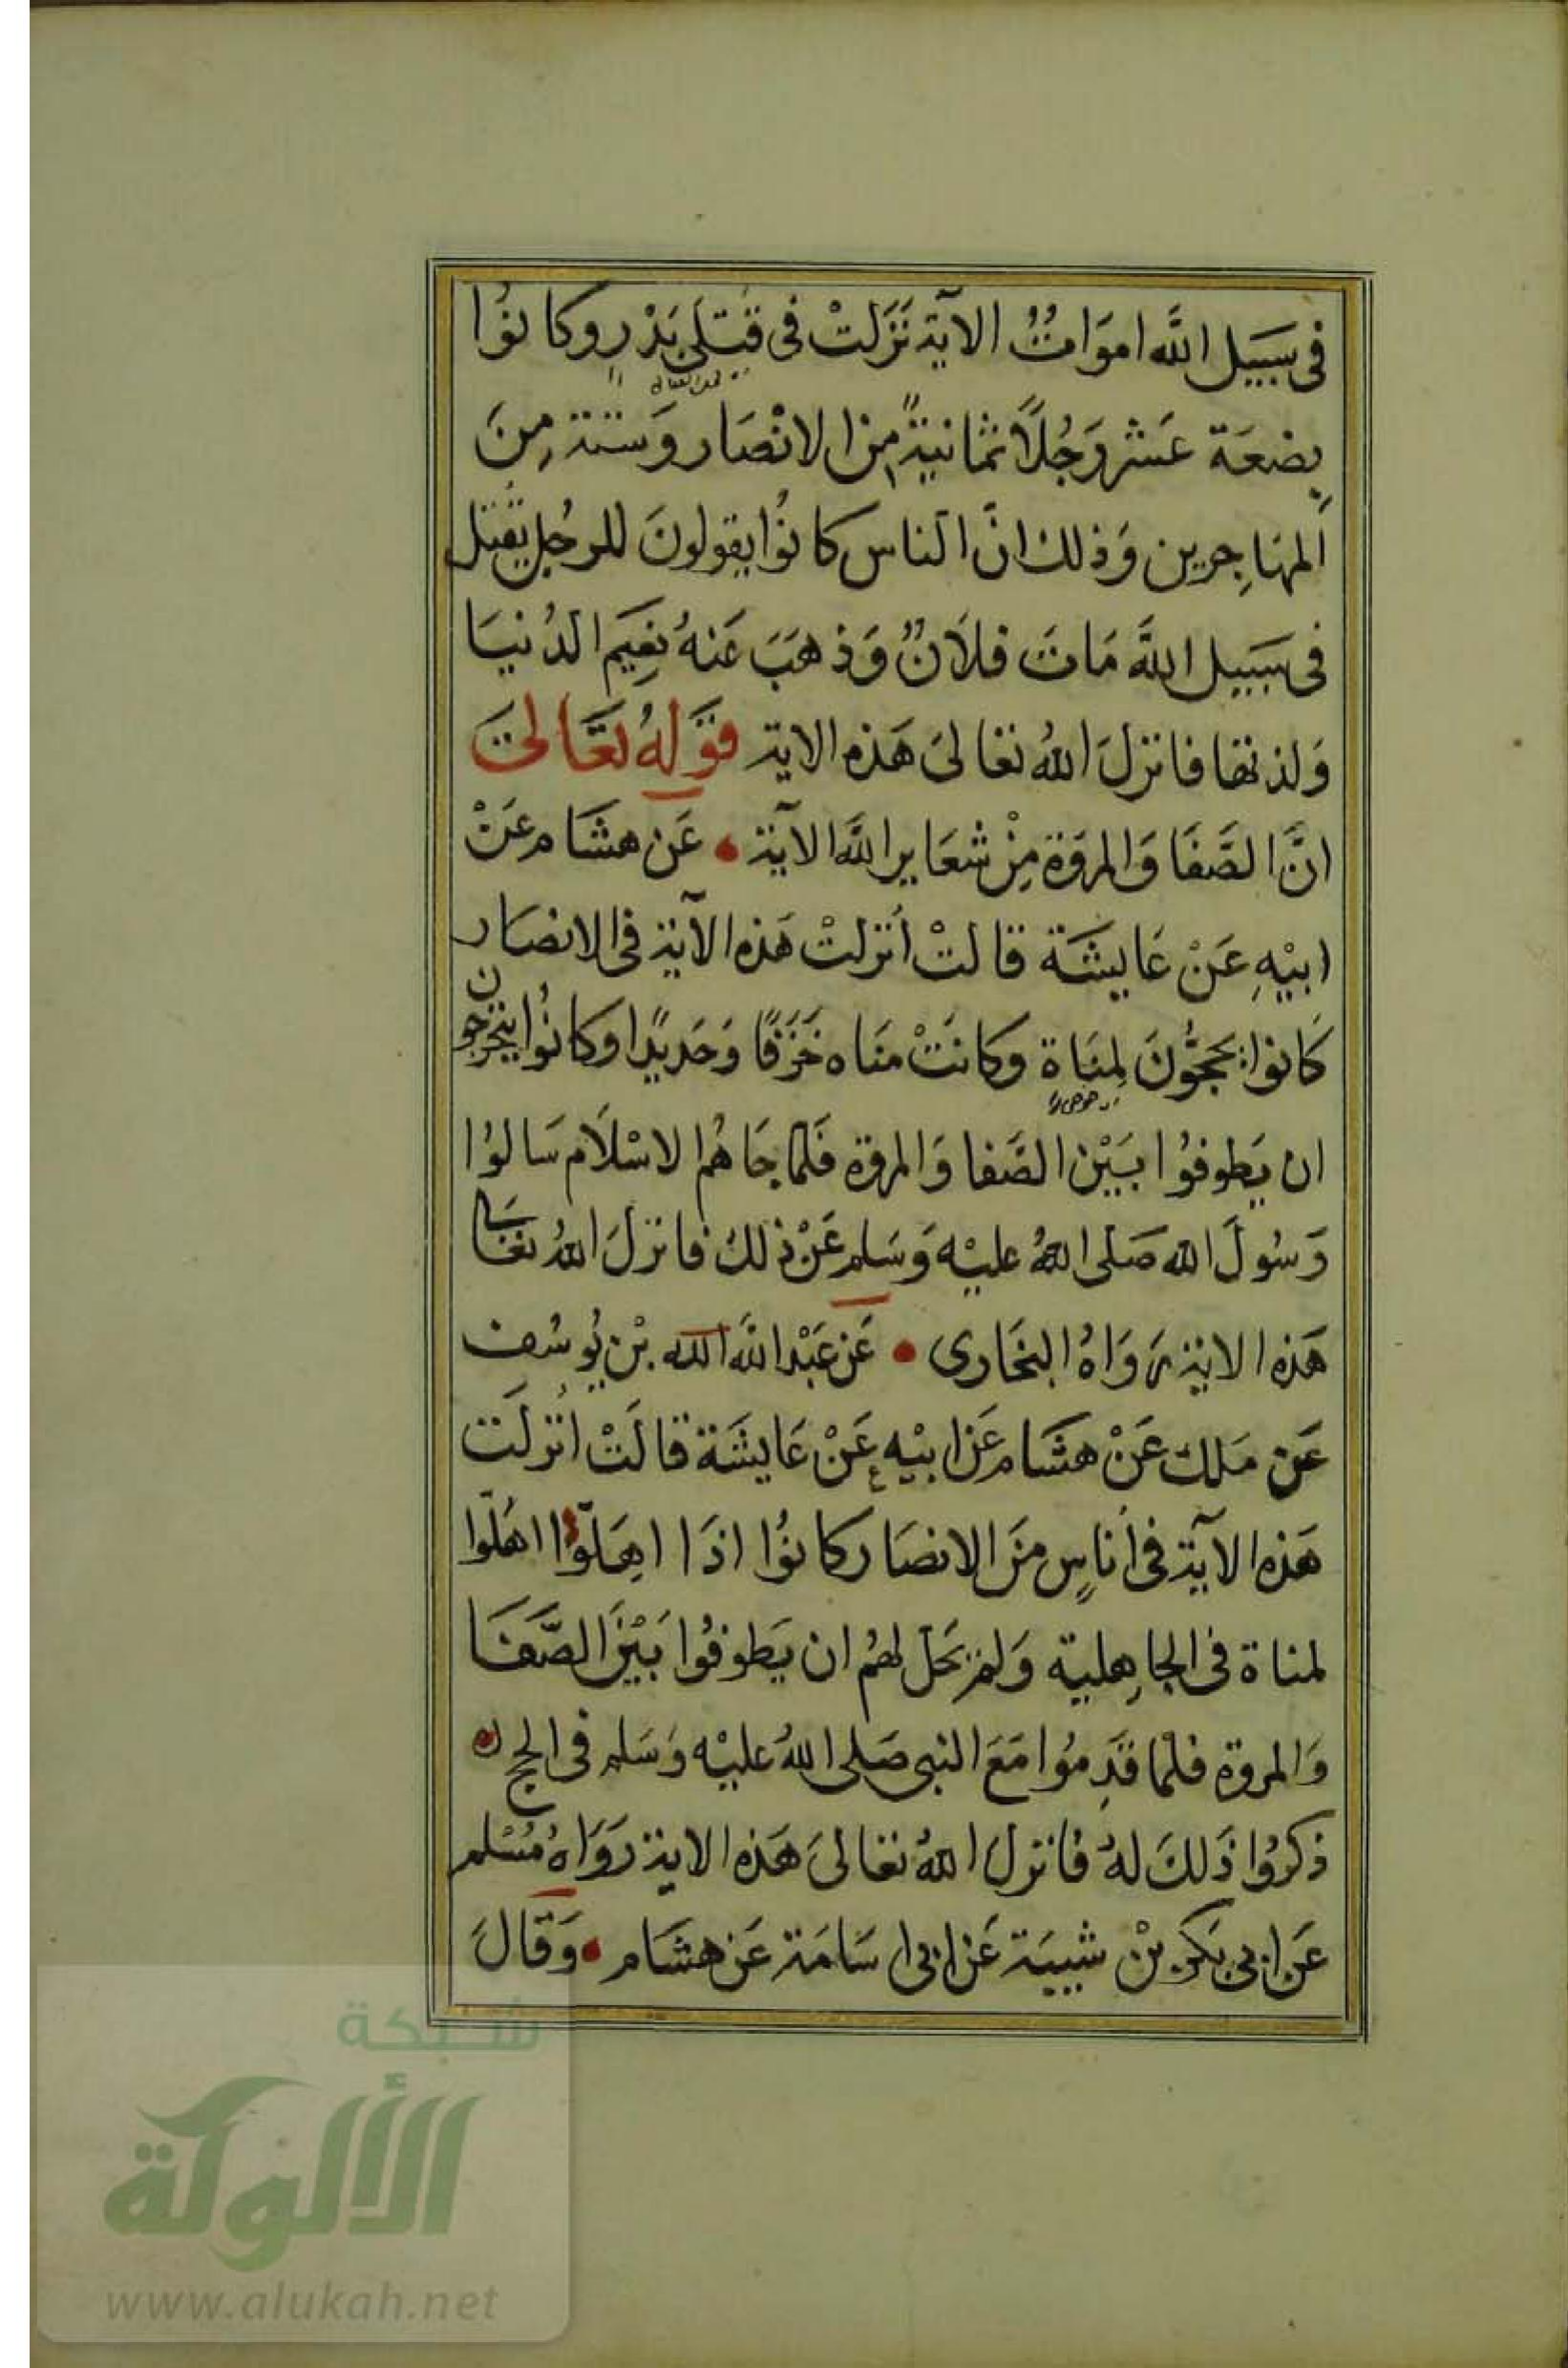 فى سَبيل اللَّه اموَاتٌ الآية نَزَلتْ فى قتلى بَدْر وكانوُا
بِضعَة عَشر رَجُلاً ثمانيةً مِن الانْصَار وَستة مِنَ
المهاجِرين وَذلك انَّ الناس كانوُا يقولونَ للرجُل يُقتل
فى سَبيل اللَّه مَاتَ فلاَنٌ وَذهَبَ عَنهُ نعِيَم الدُنيَا
وَلذتها فانزلَ اللهُ تعالىَ هَذه الاية قوَلهُ تعَالىَ
انَّ الصَّفَا وَالمروَة مِنْ شعَاير اللَّه الآية عَن هشَام عَنْ
ابيْهِ عَنْ عَايشَة قالتْ أنزلتْ هَذه الآية فى الانصَار
كَانوا يحجُّونَ لِمنَاة وكانتْ منَاه خَزَفًا وَحَديدًا وكانوُا يتحرجون
ان يَطوفوُا بَيْن الصَّفا وَالمروة فَلما جَاهُم الاسْلاَم سَالوُا
رَسُولَ الله صَلى اللهُ عليْه وَسَلم عَنْ ذلكَ فانزلَ اللهُ تعَالى
هَذه الاية رَوَاهُ البخَارى عَن عَبْد اللَّه الله بْن يُوسُف
عَن مَلك عَنْ هشَام عَن ابيْه عَنْ عَايشَة قالَتْ أنزلَت
هَذه الآية فى أناسٍ منَ الانصَار كانوُا اذَا اهَلّوا اهَلّوا
لمناة فى الجاهِلية وَلم يحَل لهُم ان يَطوفوُا بَيْنَ الصَّفَا
وَالمروة فلمَّا قدِموُا مَعَ النبى صَلى اللهُ عليْه وَسَلم فى الحج
ذكرُوا ذَلكَ لهُ فانزل اللهُ تعَالىَ هَذه الاية رَوَاهُ مُسْلم
عَن ابى بَكر بْن شيبَة عَن ابى اسَامَة عَن هشَام وَقَالَ
شبكة
الألوكة
www.alukah.net